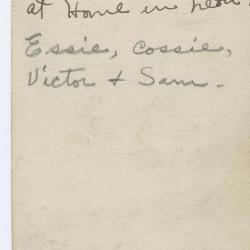 at Home in
Essie, Cossie,
Victor & Sam.